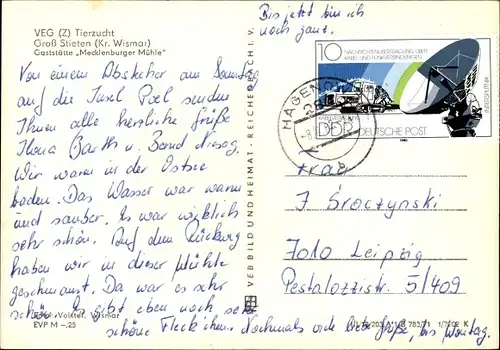 VEG (Z) Tierzucht
Groß Stieten (Kr. Wismar)
Gaststätte „Mecklenburger Mühle"
Von einem Abstecher am Sonntag
auf die Insel Poel senden
Ihnen alle herzliche Grüße
Ilona Barth u. Bernd
Wir waren in der Ostsee
baden. Das Wasser war warm
und sauber. Es war wirklich
sehr schön. Auf dem Rückweg
haben wir in dieser Mühle
geschmaust. Da war es sehr
schön. Es gibt eben noch sehr
schöne Fleckchen. Nochmals viele liebe Grüße, bis Montag.
Volster, Wismar
EVP M –.25
VEB BILD UND HEIMAT · REICHENBACH I. V.
Bis jetzt bin ich
noch ganz.
10
NACHRICHTENÜBERTRAGUNG ÜBER
KABEL UND FUNKVERBINDUNGEN
DDR
DEUTSCHE POST
HAGENOW
Frau
I. Broczynski
7010 Leipzig
Pestalozzistr. 5/409